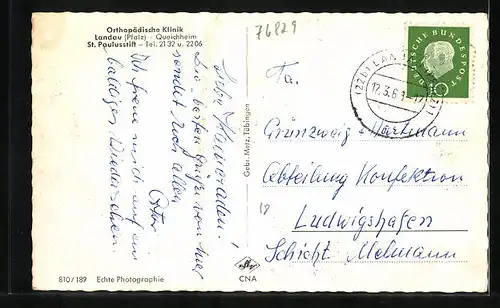 Orthopädische Klinik
Landau (Pfalz) - Queichheim
St. Paulusstift - Tel. 21 32 u. 2206
76829
DEUTSCHE BUNDESPOST
10
(22b) LANDAU
12.3.6
Liebe Kameraden!
Die besten Grüße von hier
sendet Euch allen
Otto
Ich freue mich auf ein
baldiges Wiedersehen.
Gebr. Metz, Tübingen
Fa.
Grünzweig + Hartmann
Abteilung Konfektion
Ludwigshafen
Schicht Melmann
18
810/189 Echte Photographie
CNA